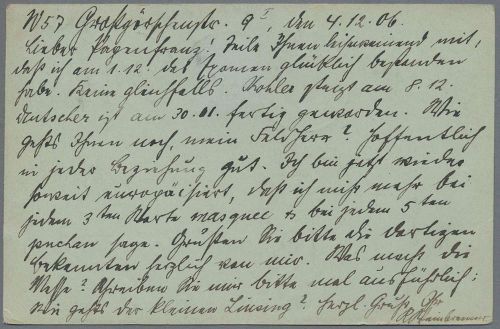 W57 Großgörschenstr. 9 I, den 4.12.06.
Lieber Papenfranz! Teile Ihnen mit,
daß ich am 1.12. das Examen glücklich bestanden
habe. Keine gleichfalls. Kohler steigt am 8.12.
Deutscher ist am 30.01. fertig geworden. Wie
gehts Ihnen noch, mein Herr? Hoffentlich
in jeder Beziehung gut. Ich bin jetzt wieder
soweit europäisiert, daß ich nicht mehr bei
jedem 3ten Worte & bei jedem 5ten
sage. Grüßen Sie bitte die dortigen
Bekannten herzlich von mir. Was macht die
Schreiben Sie mir bitte mal ausführlich;
wie gehts der kleinen Herzl. Gruß, Ihr